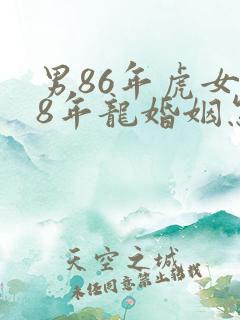 男86年虎女
8年龍婚姻怎
天空之城
未经同意禁止转载